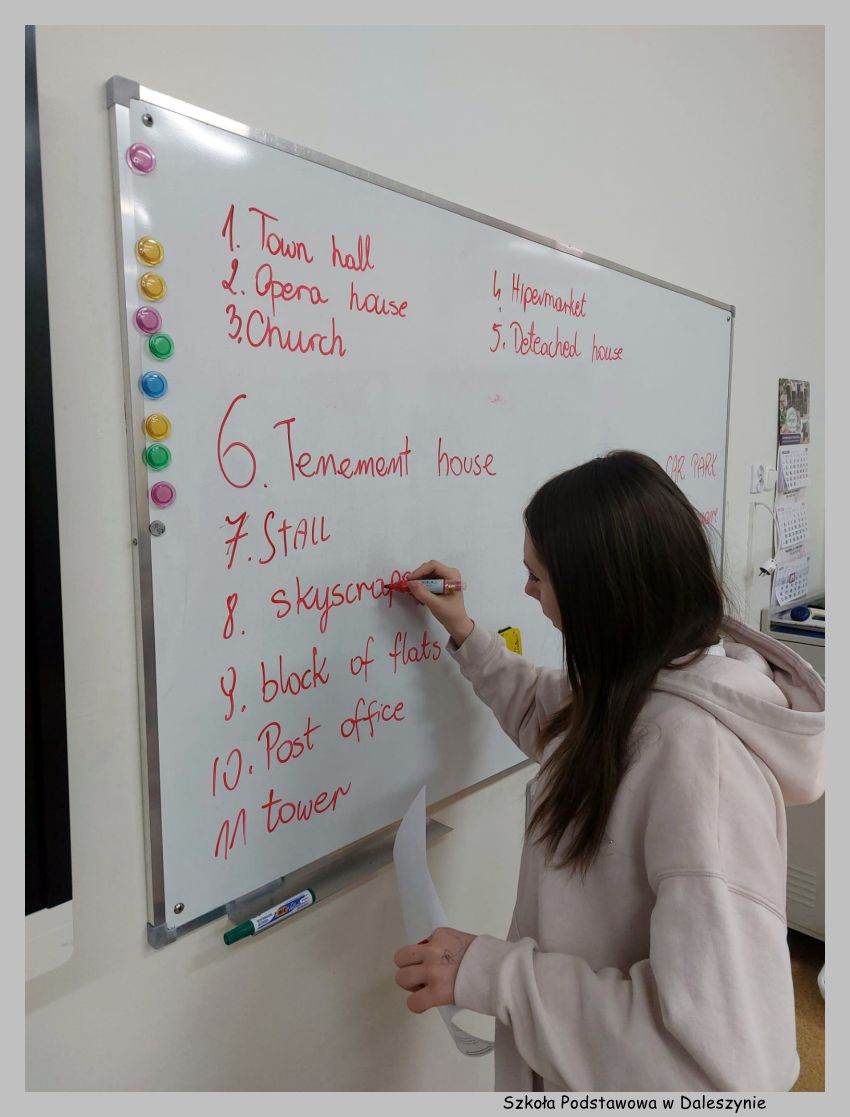 1. Town hall
2. Opera house
3. Church
4. Hipermarket
5. Deteached house
6. Tenement house
7. Stall
8. skyscrap
9. block of flats
10. Post office
11 tower
CAR PARK
Szkoła Podstawowa w Daleszynie